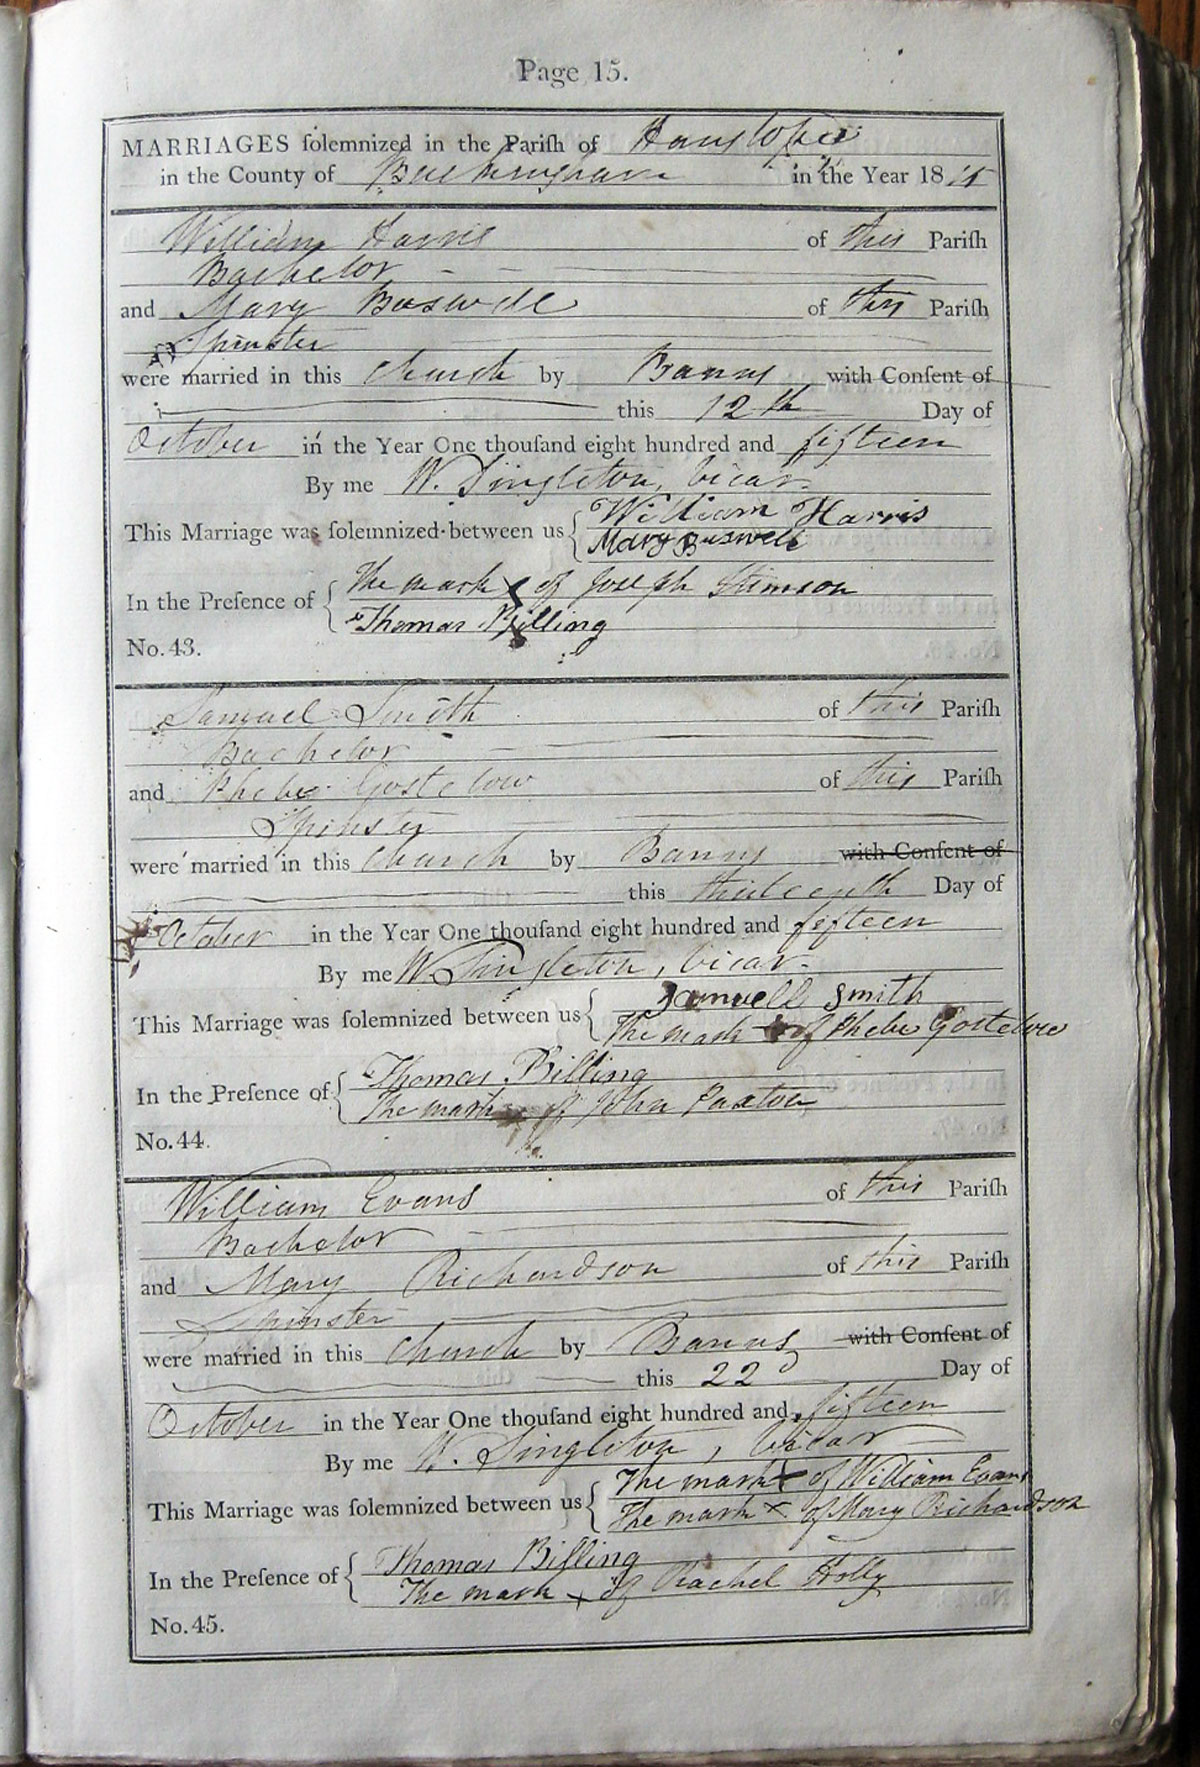 Page 15.
MARRIAGES ſolemnized in the Pariſh of Hanslope
in the County of Buckingham in the Year 1815
William Harris of this Pariſh
Bachelor
and Mary Buswell of this Pariſh
Spinster
were married in this Church by Banns with Conſent of
this 12th Day of
October in the Year One thouſand eight hundred and fifteen
By me W. Singleton, Vicar.
This Marriage was ſolemnized between us William Harris
Mary Buswell
In the Preſence of The mark x of Joseph Stimson
Thomas Billing
No. 43.
Samuel Smith of this Pariſh
Bachelor
and Phebe Gostelow of this Pariſh
Spinster
were married in this Church by Banns with Conſent of
this thirteenth Day of
October in the Year One thouſand eight hundred and fifteen
By me W. Singleton, Vicar.
This Marriage was ſolemnized between us Samuell Smith
The mark of Phebe Gostelow
In the Preſence of Thomas Billing
The mark of John Paxton
No. 44.
William Evans of this Pariſh
Bachelor
and Mary Richardson of this Pariſh
Spinster
were married in this Church by Banns with Conſent of
this 22 Day of
October in the Year One thouſand eight hundred and fifteen
By me W. Singleton, Vicar
This Marriage was ſolemnized between us The mark x of William Evans
The mark x of Mary Richardson
In the Preſence of Thomas Billing
The mark x of Rachel Holly
No. 45.